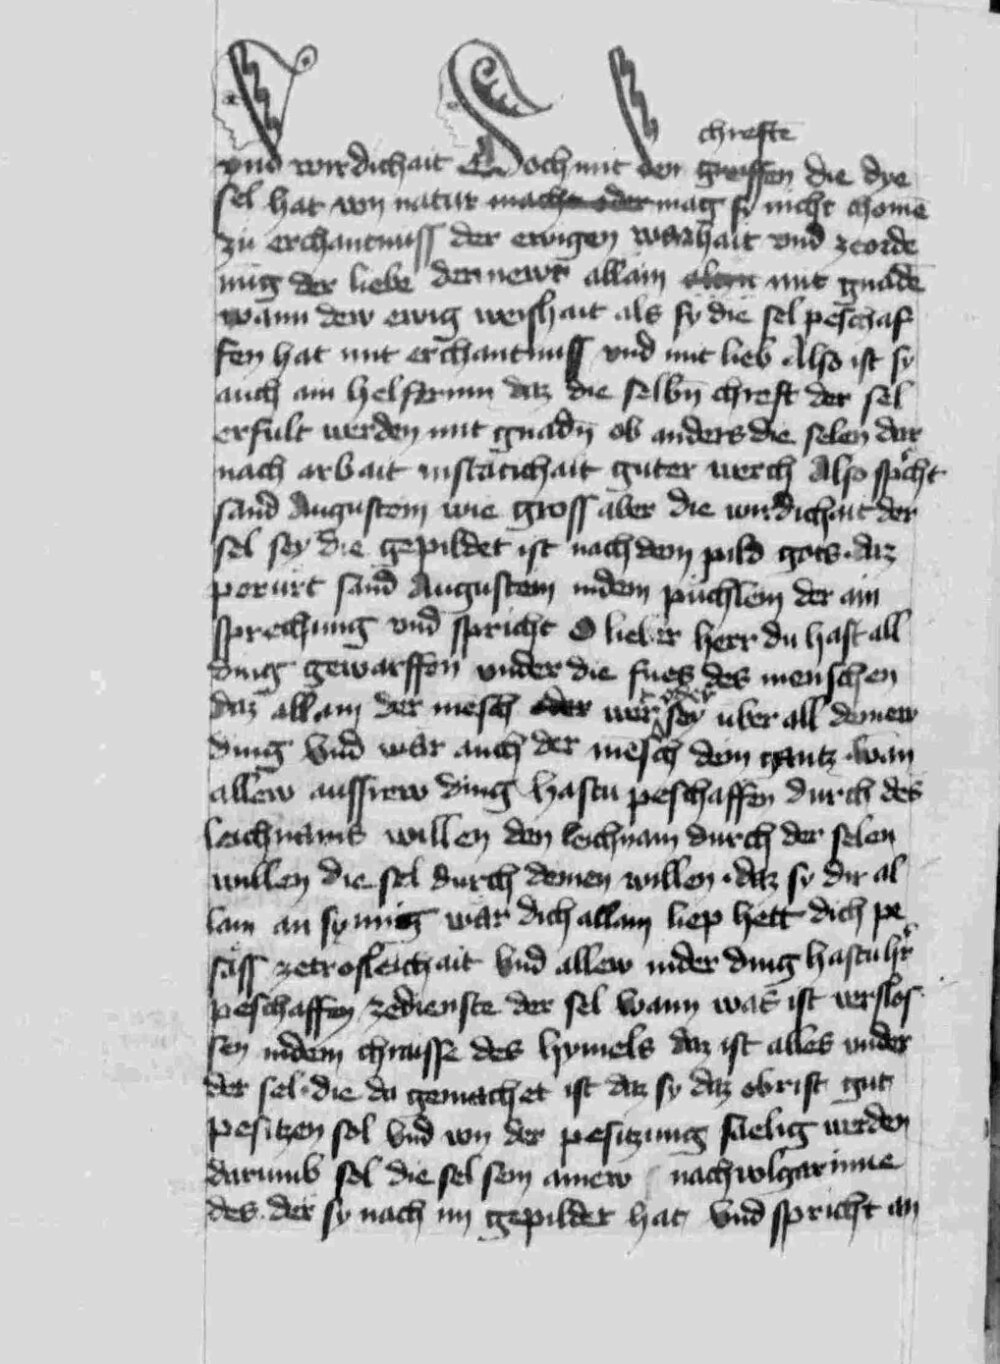 chrefte
vnd wirdichait Doch mit den greiffen die dye
sel hat von natur mache oder mag sy nicht chomē
zu erchantnuss der ewigen warhait vnd ze orde
nūg der liebe dennewr allain mit gnadē
wann dew ewig weishait als sy die sel peschaf
fen hat mit erchantnuss vnd mit lieb Also ist sy
auch ain helferinn daz die selbn̄ chreft der sel
erfult werden mit gnadn̄ ob anders die selen dar
nach arbait in stätichait guter werch Also spicht
sand Augustein wie gross aber die wirdichait der
sel sey die gepildet ist nach dem pild gots · daz
perurt sand Augustein in dem puchlein der ain
sprechung vnd spricht O lieber herr du hast all
ding gewarffen vnder die fues des menschen
daz allain der mēsch oder wer oder sey uber all deinew
ding vnd wär auch der mēsch dein gantz · wan
allew aussrew ding hastu peschaffen durch des
leichnams willen den leichnam durch der selen
willen die sel durch deinen willen · daz sy dir al
lain an synnig wär dich allain liep hett dich pe
säss ze trosleichait vnd allew inder ding hastu ir
peschaffen ze dienste der sel wann was ist verslos
sen in dem chraisse des hymels daz ist alles vnder
der sel · die da gemachet ist daz sy daz obrist gut
pesitzen sol vnd von der pesitzung saelig werden
darumb sol die sel sein ainew nachvolgarinne
des der sy nach im gepildet hat vnd spricht an